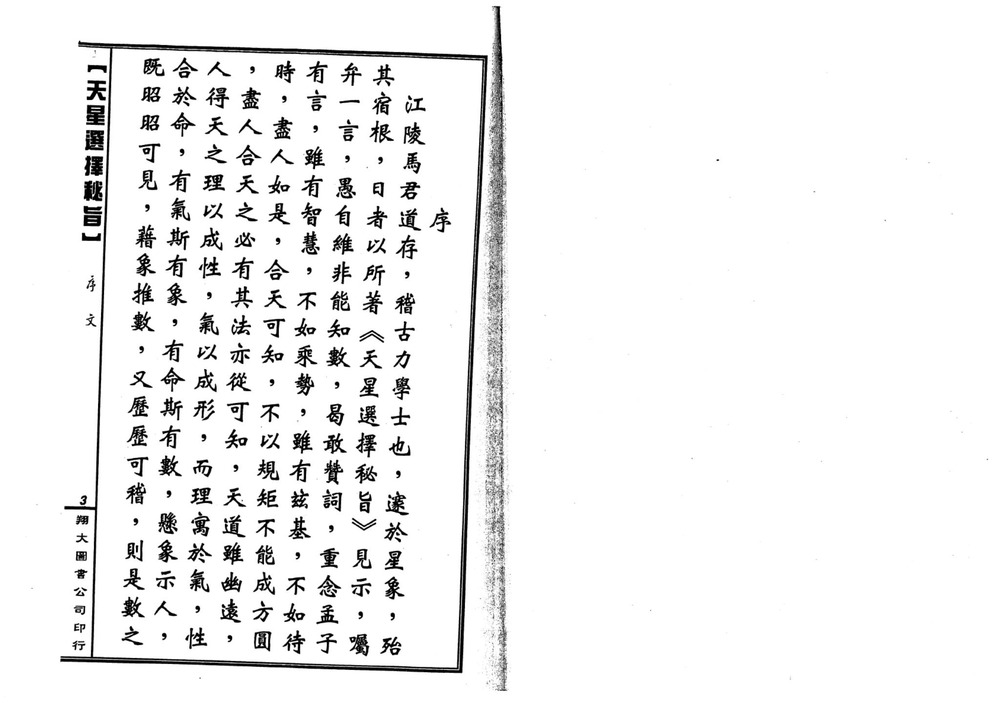 序
江陵馬君道存，稽古力學士也，邃於星象，殆
其宿根，日者以所著《天星選擇秘旨》見示，囑
弁一言，愚自維非能知數，曷敢贊詞，重念孟子
有言，雖有智慧，不如乘勢，雖有茲基，不如待
時，盡人如是，合天可知，不以規矩不能成方圓
，盡人合天之必有其法亦從可知，天道雖幽遠，
人得天之理以成性，氣以成形，而理寓於氣，性
合於命，有氣斯有象，有命斯有數，懸象示人，
既昭昭可見，藉象推數，又歷歷可稽，則是數之
【天星選擇秘旨】
序文
3
翔大圖書公司印行